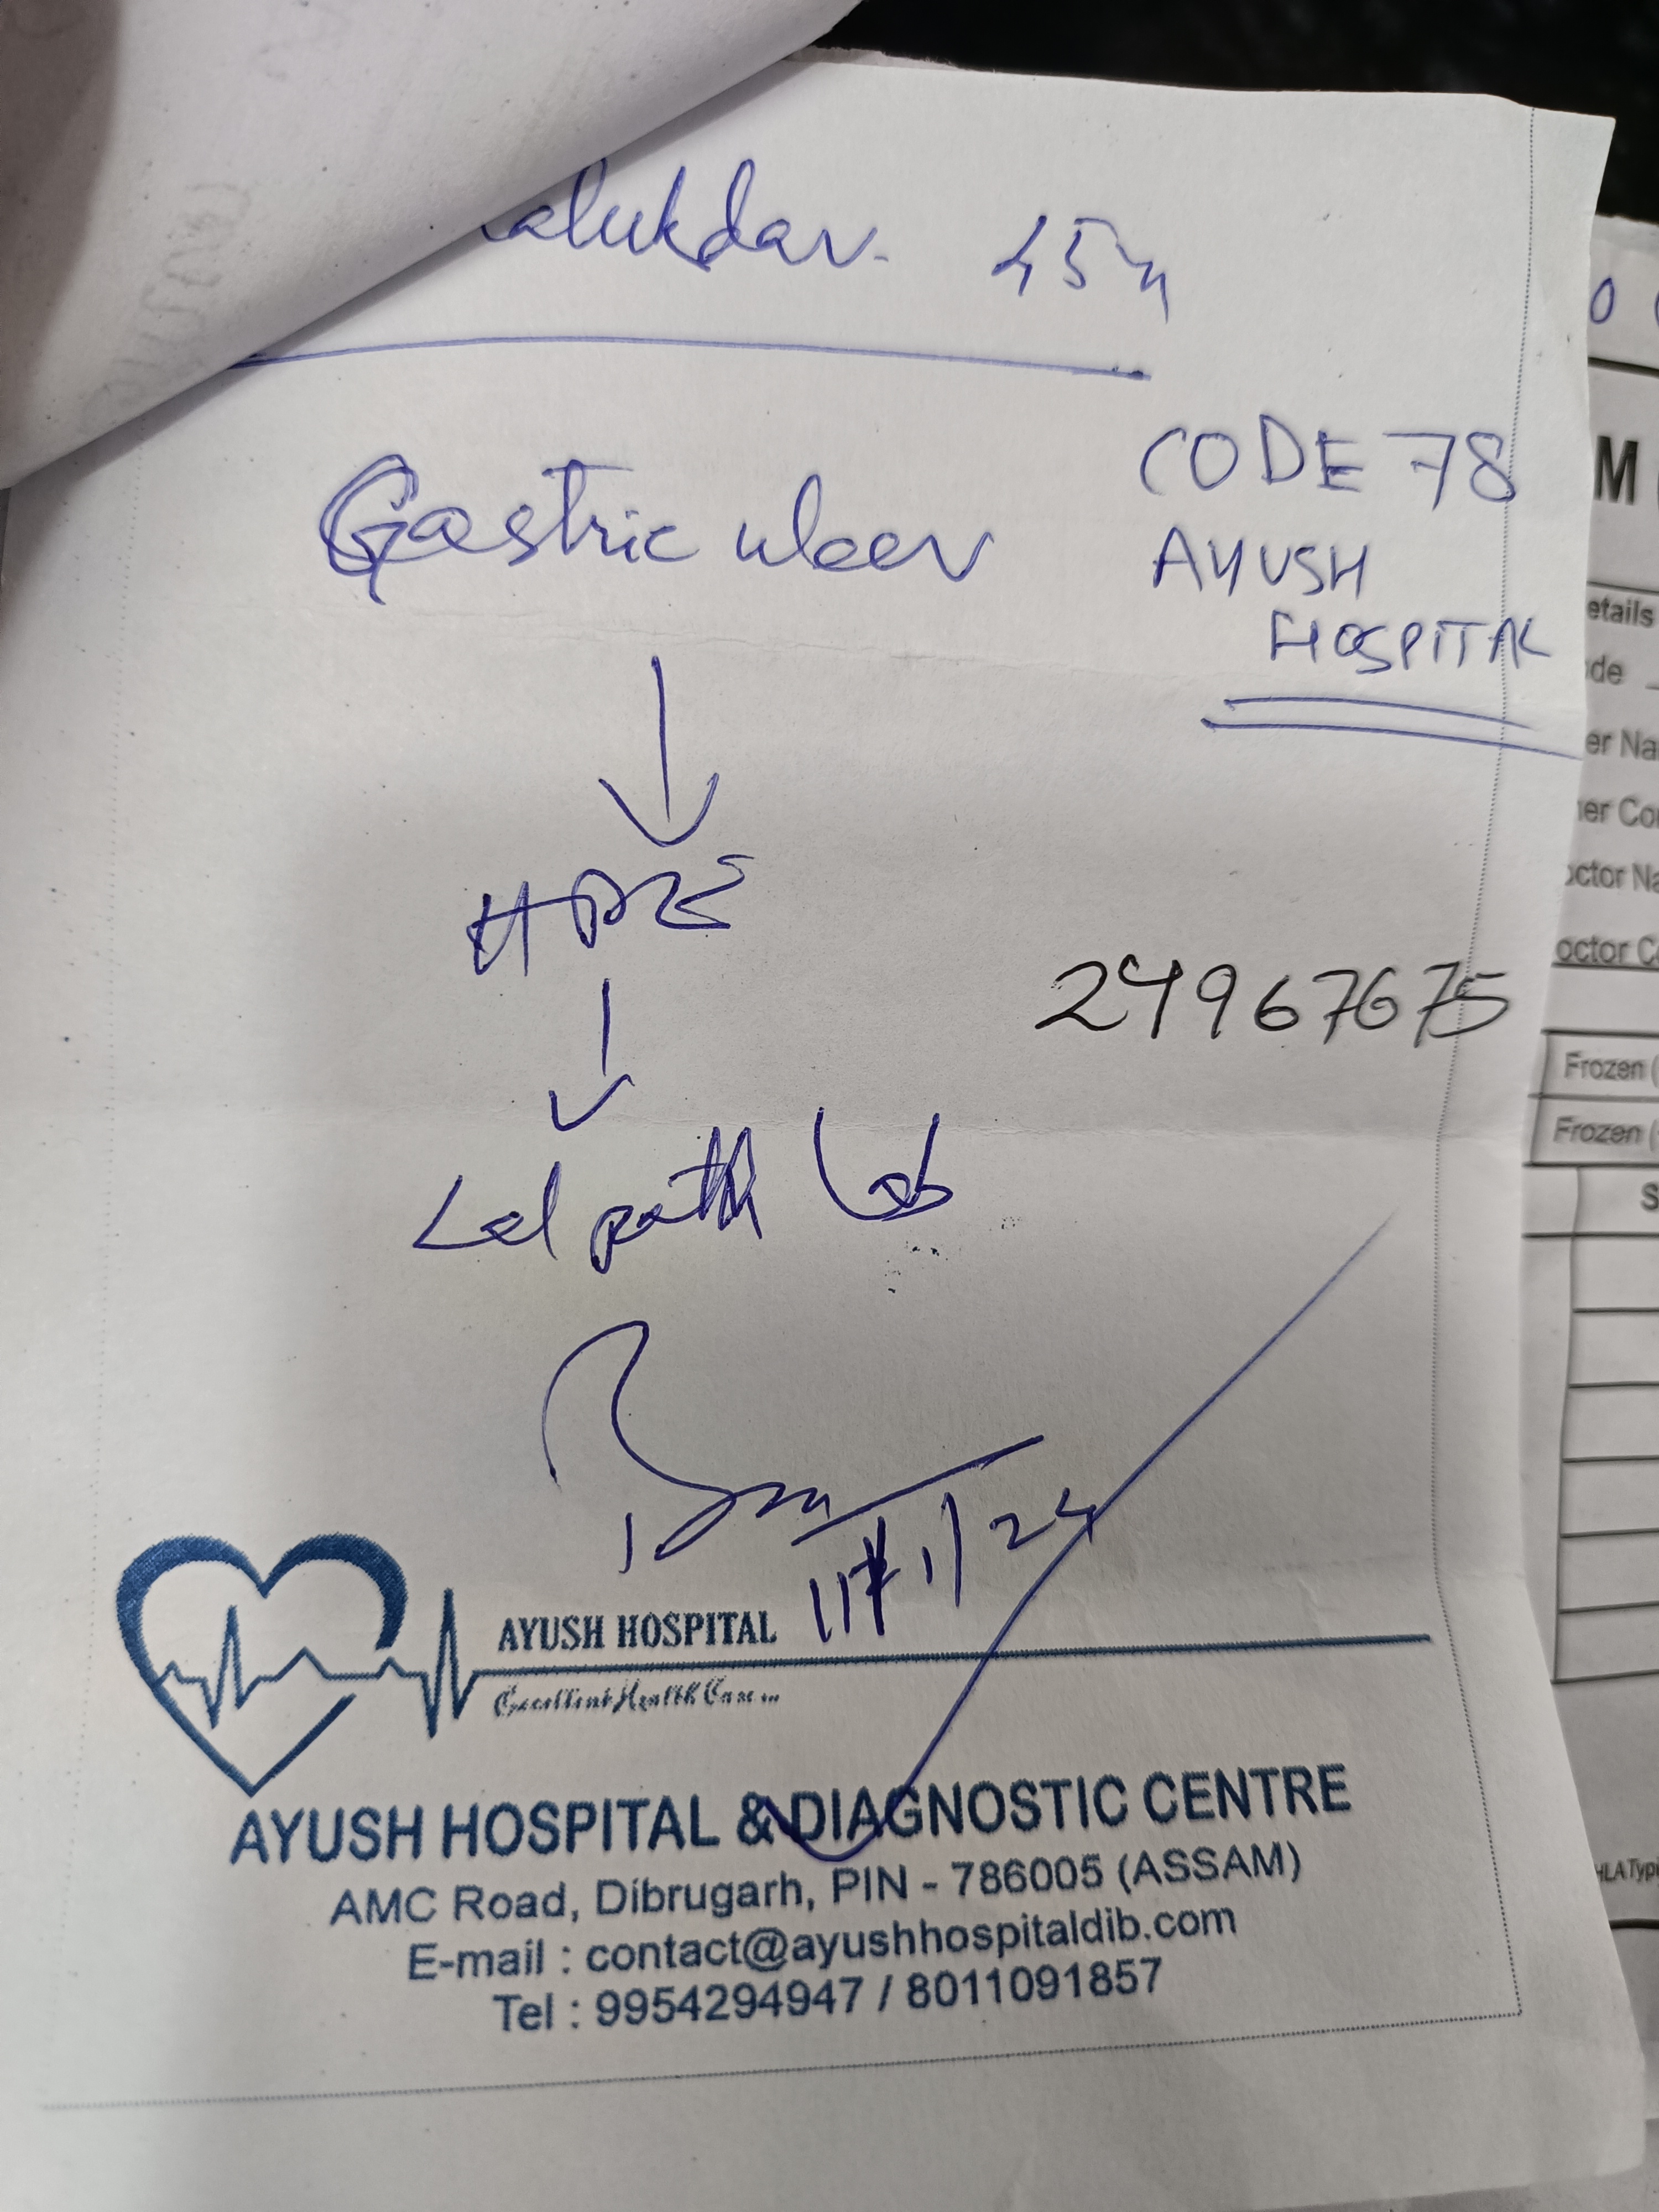 alukdar. 45y
Gastric ulcer
CODE 78
AYUSH
HOSPITAL
HPE
24967675
Lal path Lab
11/1/24
AYUSH HOSPITAL
Excellent Health Care ...
AYUSH HOSPITAL & DIAGNOSTIC CENTRE
AMC Road, Dibrugarh, PIN - 786005 (ASSAM)
E-mail : contact@ayushhospitaldib.com
Tel : 9954294947 / 8011091857
M
etails
de
er Na
er Co
octor Na
octor C
Frozen (
Frozen (
S
HLA Typi